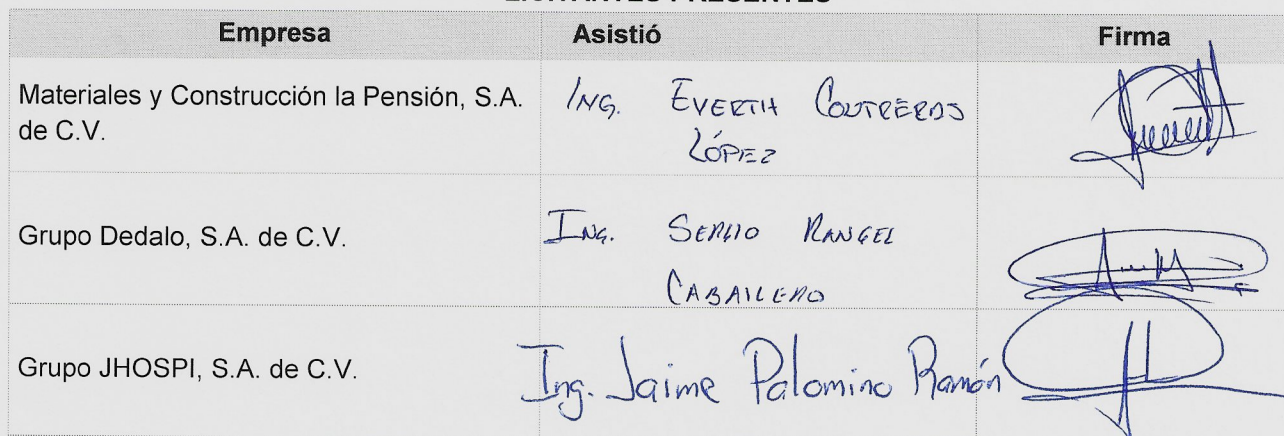 LICITANTES PRESENTES
Empresa Asistió Firma
Materiales y Construcción la Pensión, S.A. de C.V.
ING. EVERTH CONTRERAS
LÓPEZ
Grupo Dedalo, S.A. de C.V.
ING. SERGIO RANGEL
CABALLERO
Grupo JHOSPI, S.A. de C.V.
Ing. Jaime Palomino Ramón